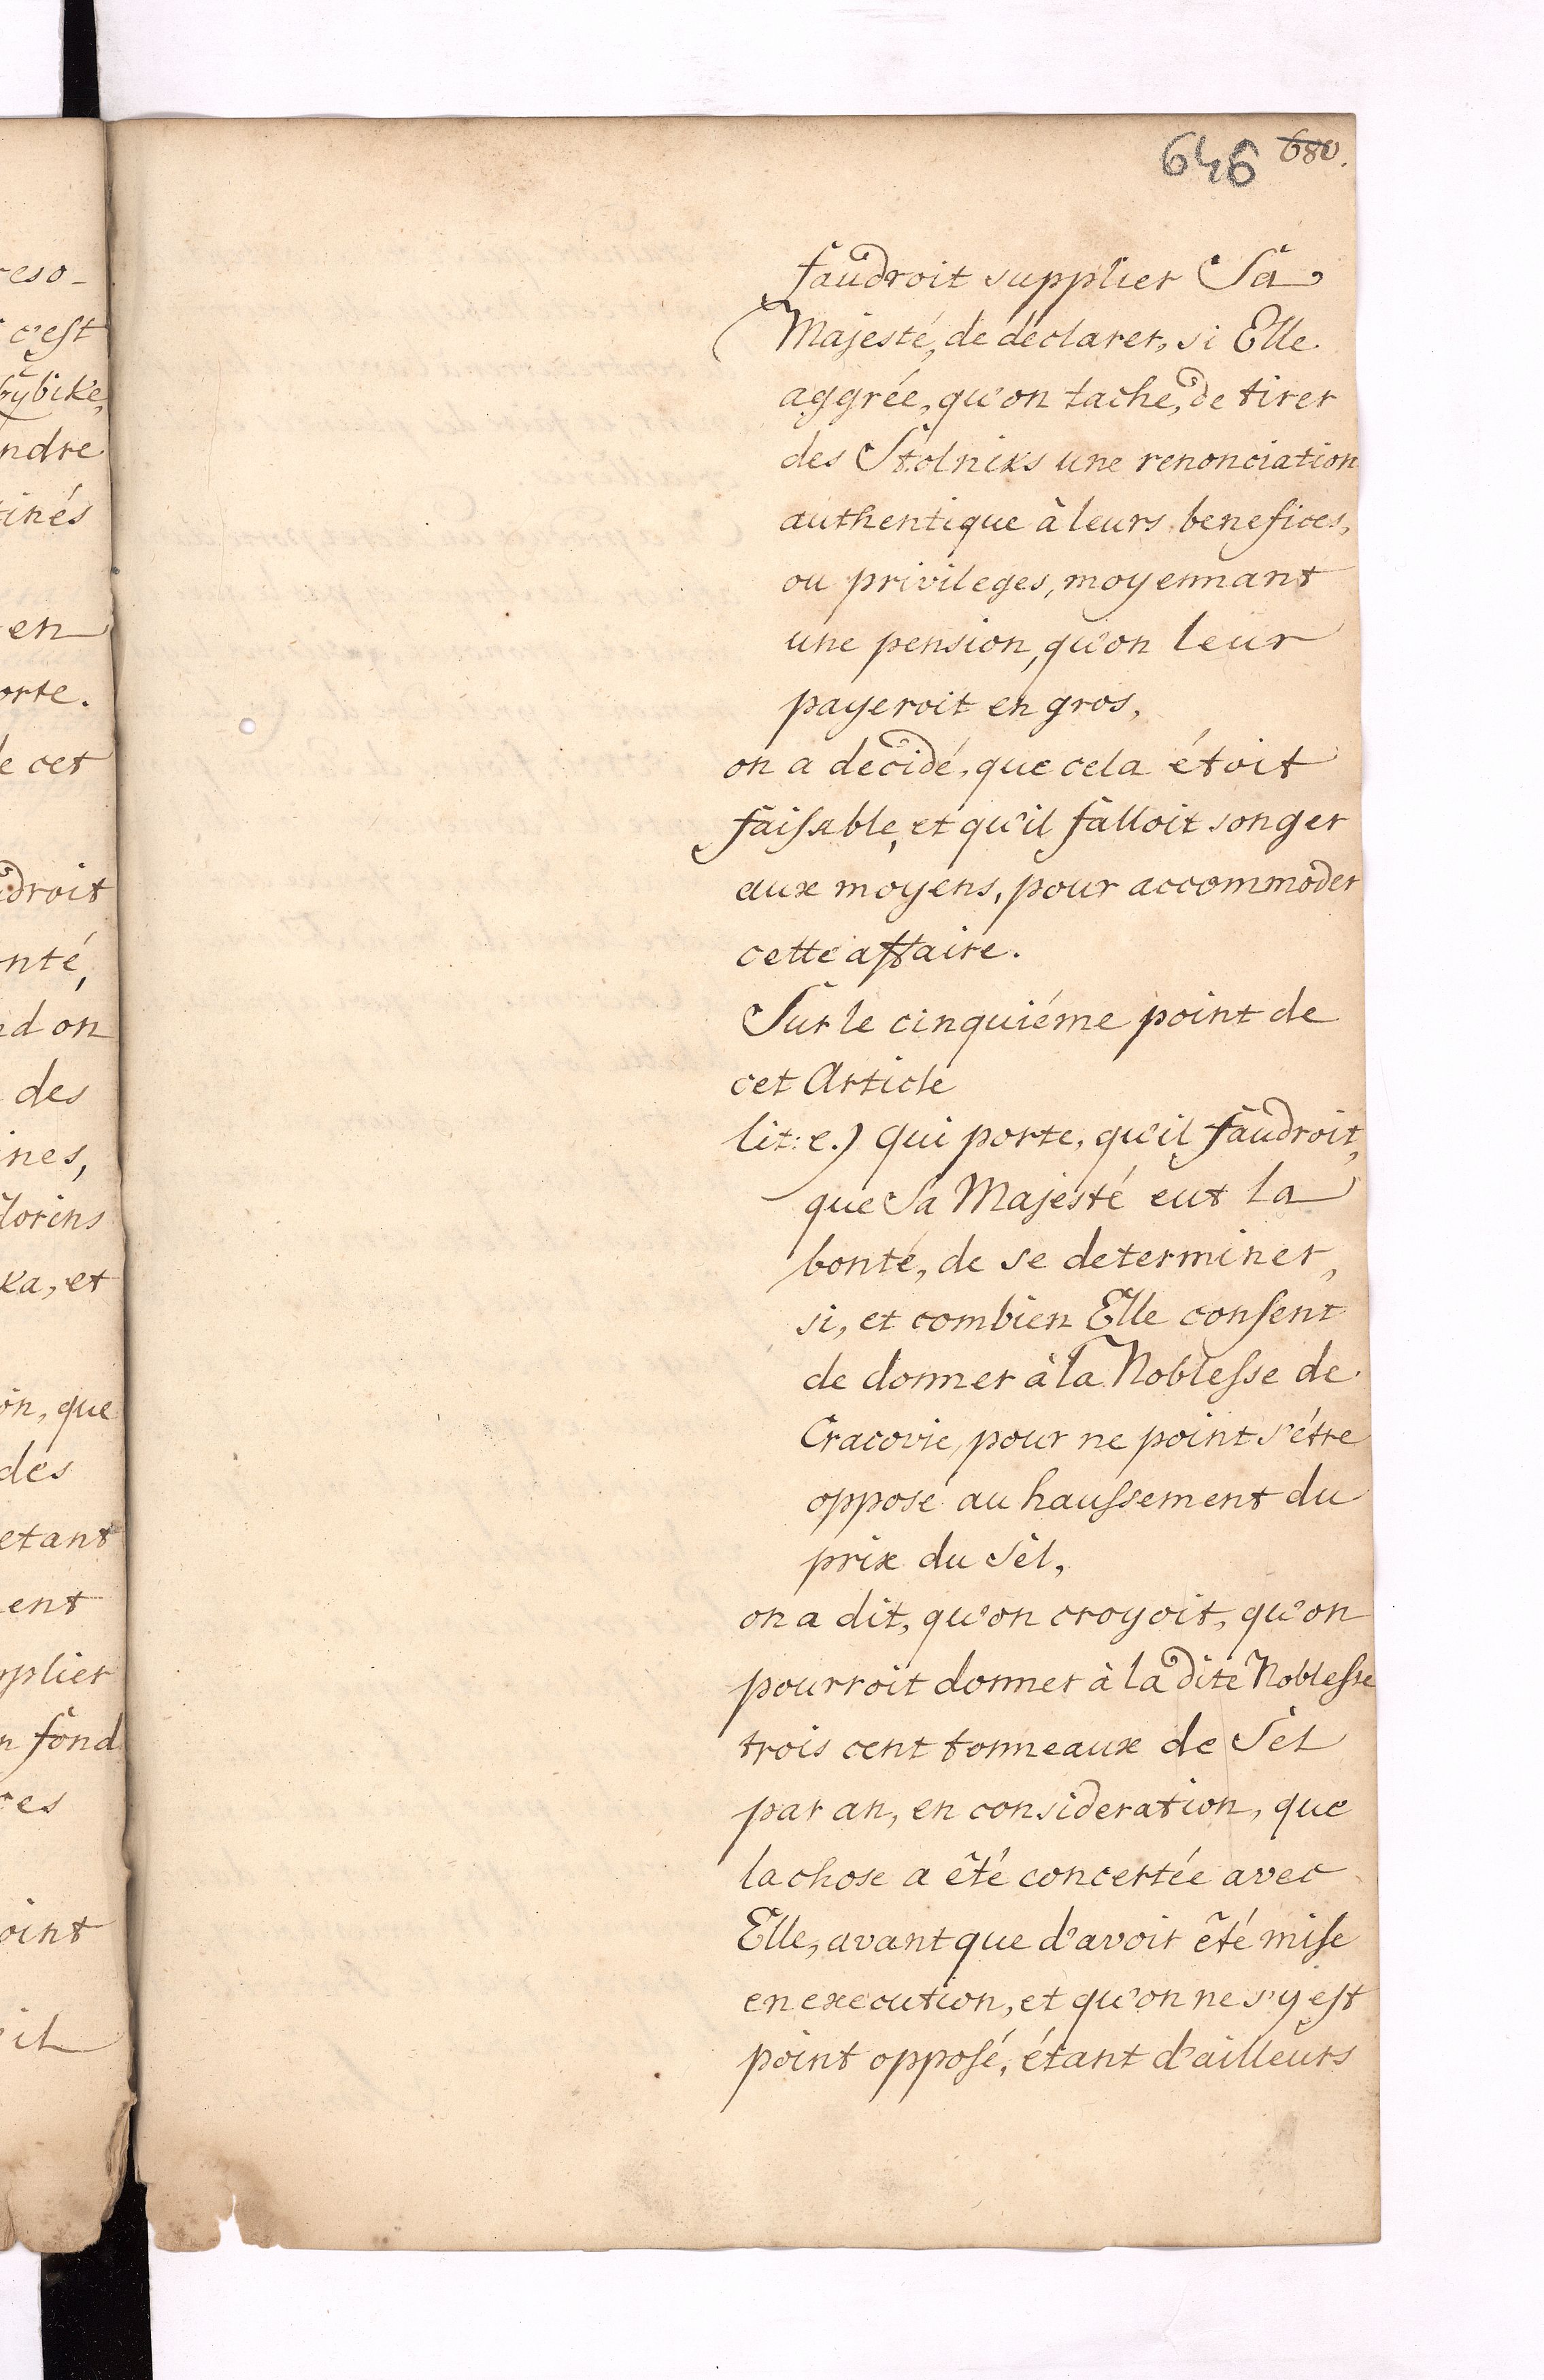 646 680.
reso-
c'est
bybike,
ndre
tinés
en
orte.
le cet
udroit
nté,
ed on
des
ines,
lorins
ka, et
on, que
des
etant
ent
pplier
n fond
ces
oint
il
faudroit supplier Sa
Majesté, de declarer, si Elle
aggrée, qu'on tache, de tirer
des Stolniks une renonciation
authentique à leurs benefices,
ou privileges, moyennant
une pension, qu'on leur
payeroit en gros,
on a decidé, que cela étoit
faisable, et qu'il falloit songer
aux moyens, pour accommoder
cette affaire.
Sur le cinquiéme point de
cet Article
lit: e.) qui porte, qu'il faudroit,
que Sa Majesté eut la
bonté, de se determiner,
si, et combien Elle consent
de donner à la Noblesse de
Cracovie, pour ne point s'étre
opposé au haussement du
prix du Sel,
on a dit, qu'on croyoit, qu'on
pourroit donner à la dite Noblesse
trois cent tonneaux de Sel
par an, en consideration, que
la chose a été concertée avec
Elle, avant que d'avoir été mise
en execution, et qu'on ne s'y est
point opposé, étant d'ailleurs